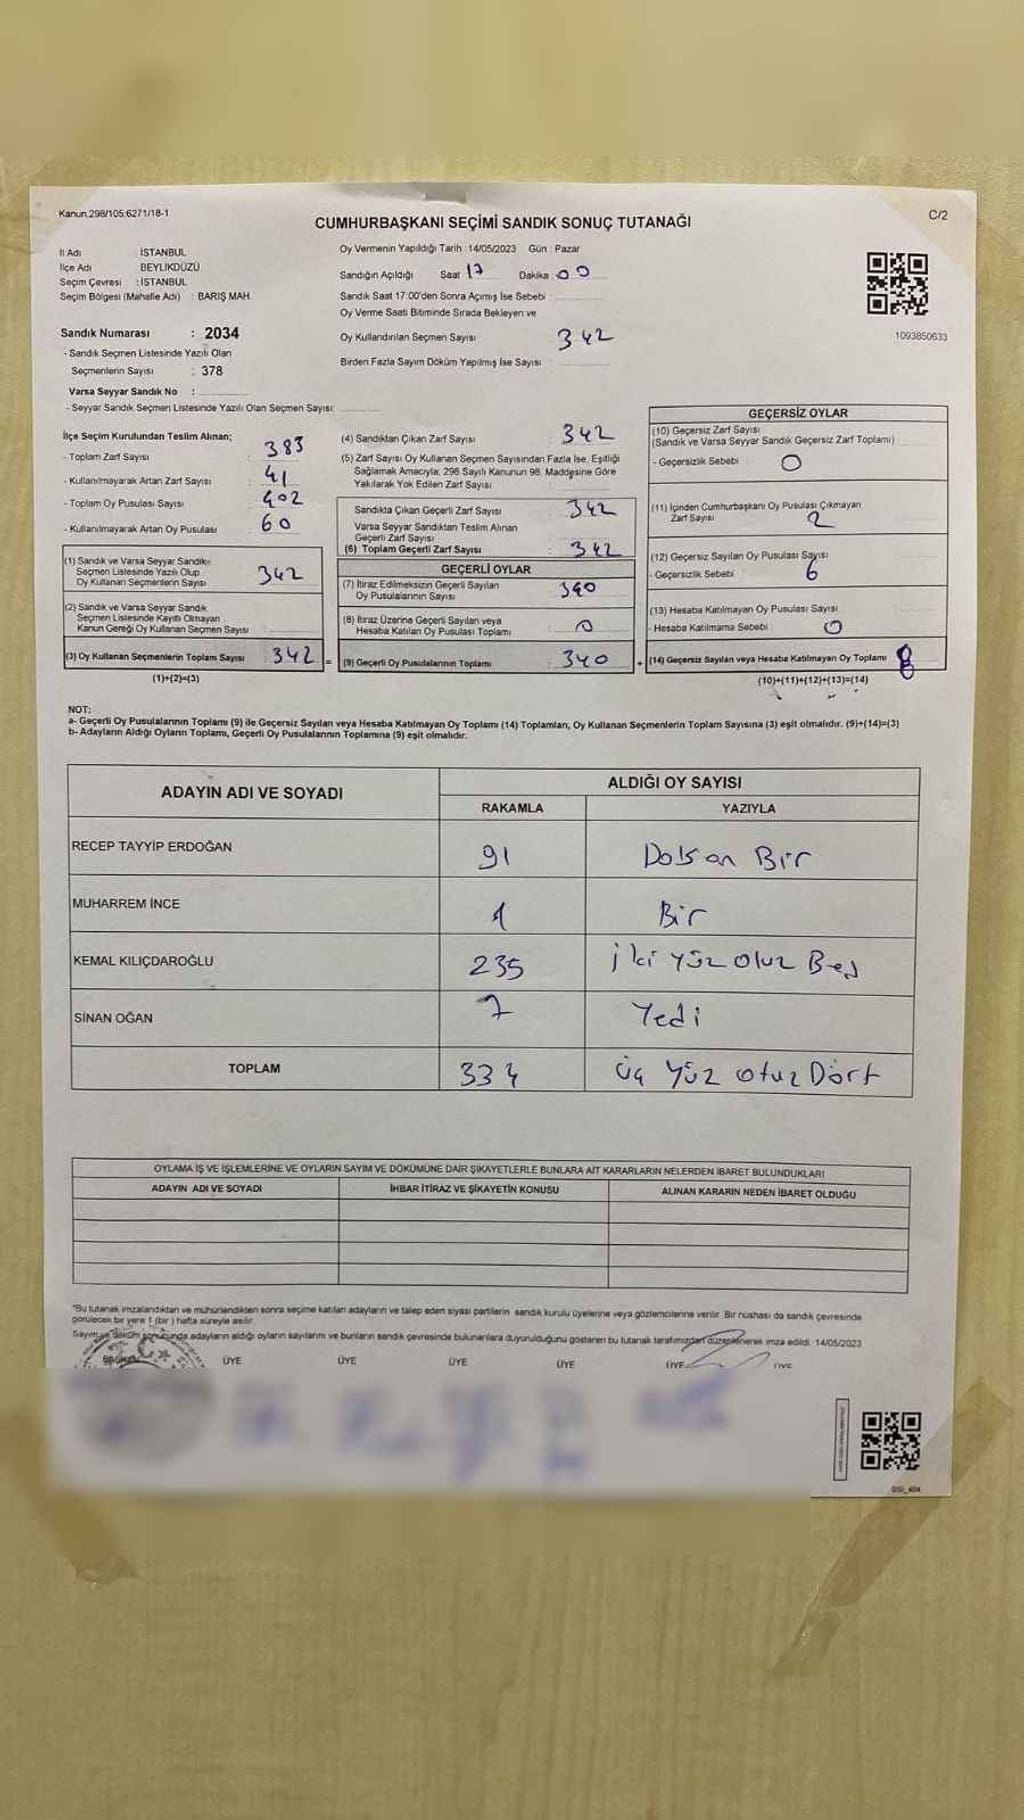 Kanun,298/105;6271/18-1
C/2
CUMHURBAŞKANI SEÇİMİ SANDIK SONUÇ TUTANAĞI
İl Adı İSTANBUL
İlçe Adı BEYLİKDÜZÜ
Seçim Çevresi : İSTANBUL
Seçim Bölgesi (Mahalle Adı) : BARIŞ MAH
Oy Vermenin Yapıldığı Tarih : 14/05/2023 Gün : Pazar
Sandığın Açıldığı Saat 17 Dakika : 00
Sandık Saat 17:00'den Sonra Açımış İse Sebebi :
Oy Verme Saati Bitiminde Sırada Bekleyen ve
Oy Kullandırılan Seçmen Sayısı : 342
Birden Fazla Sayım Döküm Yapılmış İse Sayısı
1093850633
Sandık Numarası : 2034
- Sandık Seçmen Listesinde Yazılı Olan
Seçmenlerin Sayısı : 378
Varsa Seyyar Sandık No :
- Seyyar Sandık Seçmen Listesinde Yazılı Olan Seçmen Sayısı:
İlçe Seçim Kurulundan Teslim Alınan;
- Toplam Zarf Sayısı : 383
- Kullanılmayarak Artan Zarf Sayısı : 41
- Toplam Oy Pusulası Sayısı : 402
- Kullanılmayarak Artan Oy Pusulası : 60
(1) Sandık ve Varsa Seyyar Sandık
Seçmen Listesinde Yazılı Olup
Oy Kullanan Seçmenlerin Sayısı 342
(2) Sandık ve Varsa Seyyar Sandık
Seçmen Listesinde Kayıtlı Olmayan
Kanun Gereği Oy Kullanan Seçmen Sayısı
(3) Oy Kullanan Seçmenlerin Toplam Sayısı 342 =
(1)+(2)=(3)
(4) Sandıktan Çıkan Zarf Sayısı : 342
(5) Zarf Sayısı Oy Kullanan Seçmen Sayısından Fazla İse, Eşitliği
Sağlamak Amacıyla, 298 Sayılı Kanunun 98. Maddesine Göre
Yakılarak Yok Edilen Zarf Sayısı
Sandıkta Çıkan Geçerli Zarf Sayısı 342
Varsa Seyyar Sandıktan Teslim Alınan
Geçerli Zarf Sayısı
(6) Toplam Geçerli Zarf Sayısı : 342
GEÇERLİ OYLAR
(7) İtiraz Edilmeksizin Geçerli Sayılan
Oy Pusulalarının Sayısı 340
(8) İtiraz Üzerine Geçerli Sayılan veya
Hesaba Katılan Oy Pusulası Toplamı 0
(9) Geçerli Oy Pusulalarının Toplamı 340 +
GEÇERSİZ OYLAR
(10) Geçersiz Zarf Sayısı
(Sandık ve Varsa Seyyar Sandık Geçersiz Zarf Toplamı)
- Geçersizlik Sebebi 0
(11) İçinden Cumhurbaşkanı Oy Pusulası Çıkmayan
Zarf Sayısı 2
(12) Geçersiz Sayılan Oy Pusulası Sayısı
- Geçersizlik Sebebi 6
(13) Hesaba Katılmayan Oy Pusulası Sayısı
- Hesaba Katılmama Sebebi : 0
(14) Geçersiz Sayılan veya Hesaba Katılmayan Oy Toplamı 8
(10)+(11)+(12)+(13)=(14)
NOT:
a- Geçerli Oy Pusulalarının Toplamı (9) ile Geçersiz Sayılan veya Hesaba Katılmayan Oy Toplamı (14) Toplamları, Oy Kullanan Seçmenlerin Toplam Sayısına (3) eşit olmalıdır. (9)+(14)=(3)
b- Adayların Aldığı Oyların Toplamı, Geçerli Oy Pusulalarının Toplamına (9) eşit olmalıdır.
ADAYIN ADI VE SOYADI ALDIĞI OY SAYISI
RAKAMLA YAZIYLA
RECEP TAYYİP ERDOĞAN 91 Doksan Bir
MUHARREM İNCE 1 Bir
KEMAL KILIÇDAROĞLU 235 iki yüz otuz Beş
SİNAN OĞAN 7 Yedi
TOPLAM 334 üç yüz otuz Dört
OYLAMA İŞ VE İŞLEMLERİNE VE OYLARIN SAYIM VE DÖKÜMÜNE DAİR ŞİKAYETLERLE BUNLARA AİT KARARLARIN NELERDEN İBARET BULUNDUKLARI
ADAYIN ADI VE SOYADI İHBAR İTİRAZ VE ŞİKAYETİN KONUSU ALINAN KARARIN NEDEN İBARET OLDUĞU
*Bu tutanak imzalandıktan ve mühürlendikten sonra seçime katılan adayların ve talep eden siyasi partilerin sandık kurulu üyelerine veya gözlemcilerine verilir. Bir nüshası da sandık çevresinde
görülecek bir yere 1 (bir) hafta süreyle asılır.
Sayım ve döküm sonucunda adayların aldığı oyların sayılarını ve bunların sandık çevresinde bulunanlara duyurulduğunu gösteren bu tutanak tarafımızdan düzenlenerek imza edildi. 14/05/2023
ÜYE ÜYE ÜYE ÜYE ÜYE ÜYE